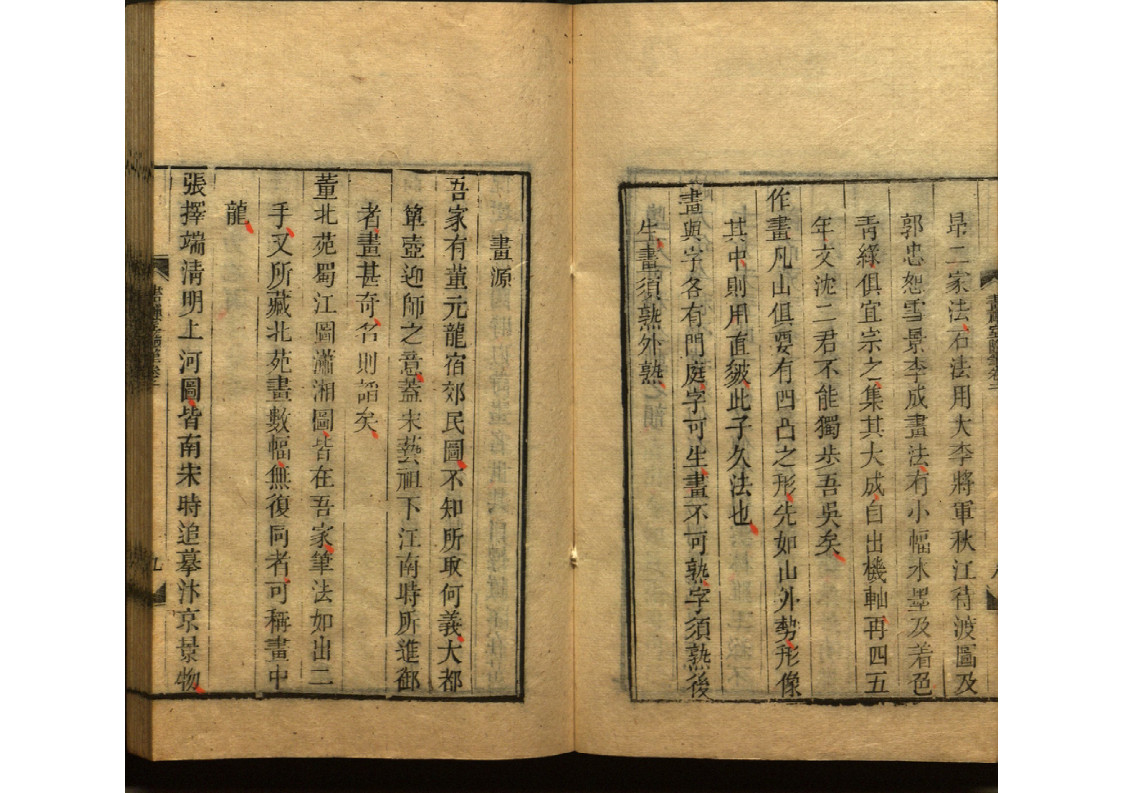 昻二家法石法用大李將軍秋江待渡圖及
郭忠恕雪景李成畫法有小幅水墨及着色
靑綠俱宜宗之集其大成自出機軸再四五
年文沈二君不能獨步吾吳矣
作畫凡山俱要有凹凸之形先如山外勢形像
其中則用直皴此子久法也
畫與字各有門庭字可生畫不可熟字須熟後
生畫須熟外熟
畫源
吾家有董元龍宿郊民圖不知所取何義大都
簞壺迎師之意蓋宋藝祖下江南時所進御
者畫甚奇名則謟矣
董北苑蜀江圖瀟湘圖皆在吾家筆法如出二
手又所藏北苑畫數幅無復同者可稱畫中
龍
張擇端淸明上河圖皆南宋時追摹汴京景物
九